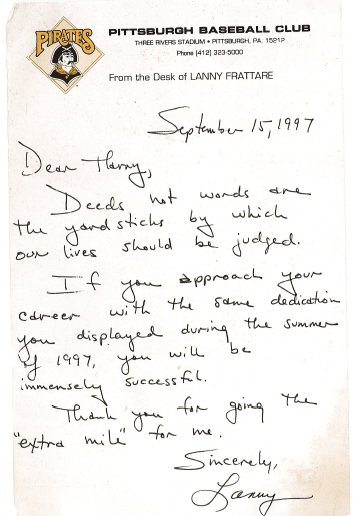 PIRATES
PITTSBURGH BASEBALL CLUB
THREE RIVERS STADIUM • PITTSBURGH, PA. 15212
Phone (412) 323-5000
From the Desk of LANNY FRATTARE
September 15, 1997
Dear
Deeds not words are
the yard sticks by which
our lives should be judged.
If you approach your
career with the same dedication
you displayed during the summer
of 1997, you will be
immensely successful.
Thank you for going the
"extra mile" for me.
Sincerely,
Lanny